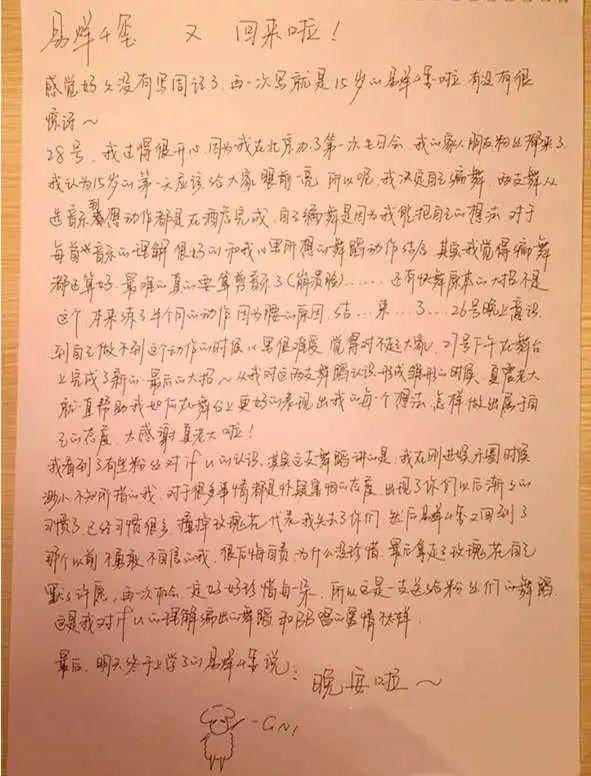 易烊千玺 又 回来啦！
感觉好久没有写周记了，再一次写就是15岁的易烊千玺啦 有没有很
惊讶～
28号，我过得很开心，因为我在北京办了第一次生日会，我的家人朋友粉丝都来了
我认为15岁的第一天应该给大家眼前一亮 所以呢，我决定自己编舞，两支舞从
选音乐到想动作都是在酒店完成，自己编舞是因为我能把自己的想法 对于
每首音乐的理解 很好的和我心里所想的舞蹈动作结合 其实我觉得编舞
都还算好，最难的真的要算剪音乐了(崩溃脸)...... 还有快舞原本的大招不是
这个，本来练了半个月的动作 因为腰的原因，结...果...了...26号晚上意识
到自己做不到这个动作的时候 心里很难受 觉得对不起大家，27号下午在舞台
上完成了新的最后的大招～从我对这两支舞蹈认识形成雏形的时候，夏老大
就一直帮助我如何在舞台上更好的表现出我的每个想法，怎样做出属于自
己的态度，太感谢夏老大啦！
我看到了有些粉丝对if u的认识，其实这支舞蹈讲的是，我在刚进娱乐圈时候
渺小 不知所措的我，对于很多事情都是怀疑害怕的态度 出现了你们以后渐渐的
习惯了，已经习惯很多，撞掉玫瑰花 代表我失去了你们 然后易烊千玺又回到了
那个以前 不勇敢 不自信的我，很后悔自责，为什么没珍惜，最后拿起了玫瑰花 在自己
默默许愿，再一次机会，一定好好珍惜每一朵，所以这是一支送给粉丝们的舞蹈
这是我对if u的理解编出的舞蹈 和哥唱的爱情不一样
最后，明天终于上学了的易烊千玺说：
晚安啦～